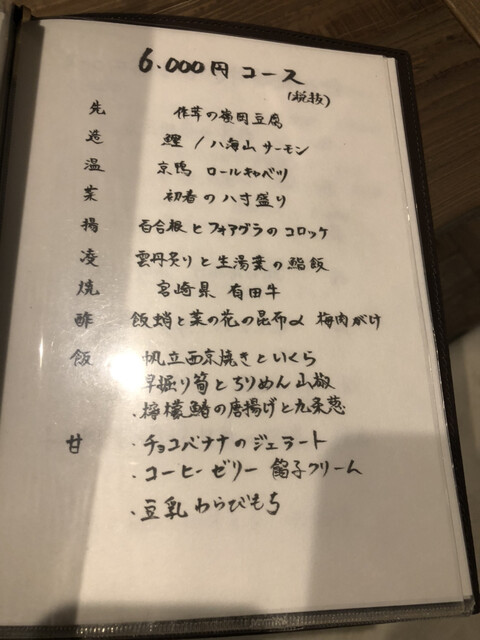 6.000円コース
(税抜)
先 作茸の嶺岡豆腐
造 鰹 / 八海山サーモン
温 京鴨 ロールキャベツ
菜 初春の八寸盛り
揚 百合根とフォアグラのコロッケ
凌 雲丹炙りと生湯葉の鮨飯
焼 宮崎県 有田牛
酢 飯蛸と菜の花の昆布〆 梅肉がけ
飯 帆立西京焼きといくら
早掘り筍とちりめん山椒
・檸檬鰆の唐揚げと九条葱
甘 ・チョコバナナのジェラート
・コーヒーゼリー 餡子クリーム
・豆乳わらびもち